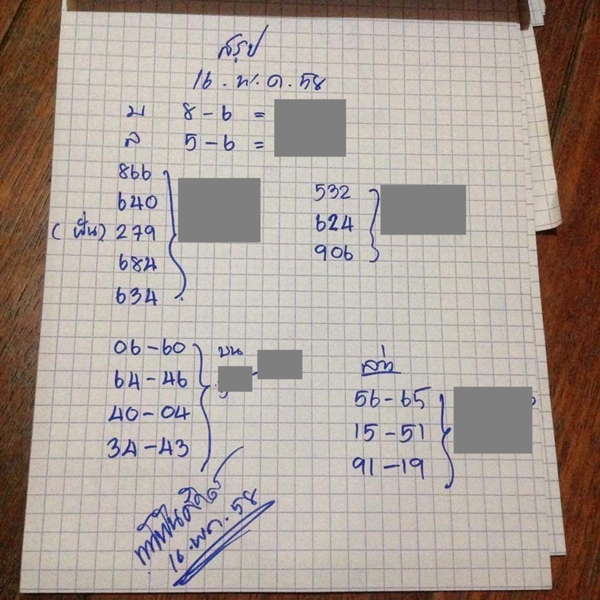 สรุป
16.พ.ค.58
บ 8-6 =
ล 5-6 =
866
640
(ฟัน) 279
684
634
532
624
906
06-60
64-46
40-04
34-43
บน
ล่าง
56-65
15-51
91-19
16.พค.58